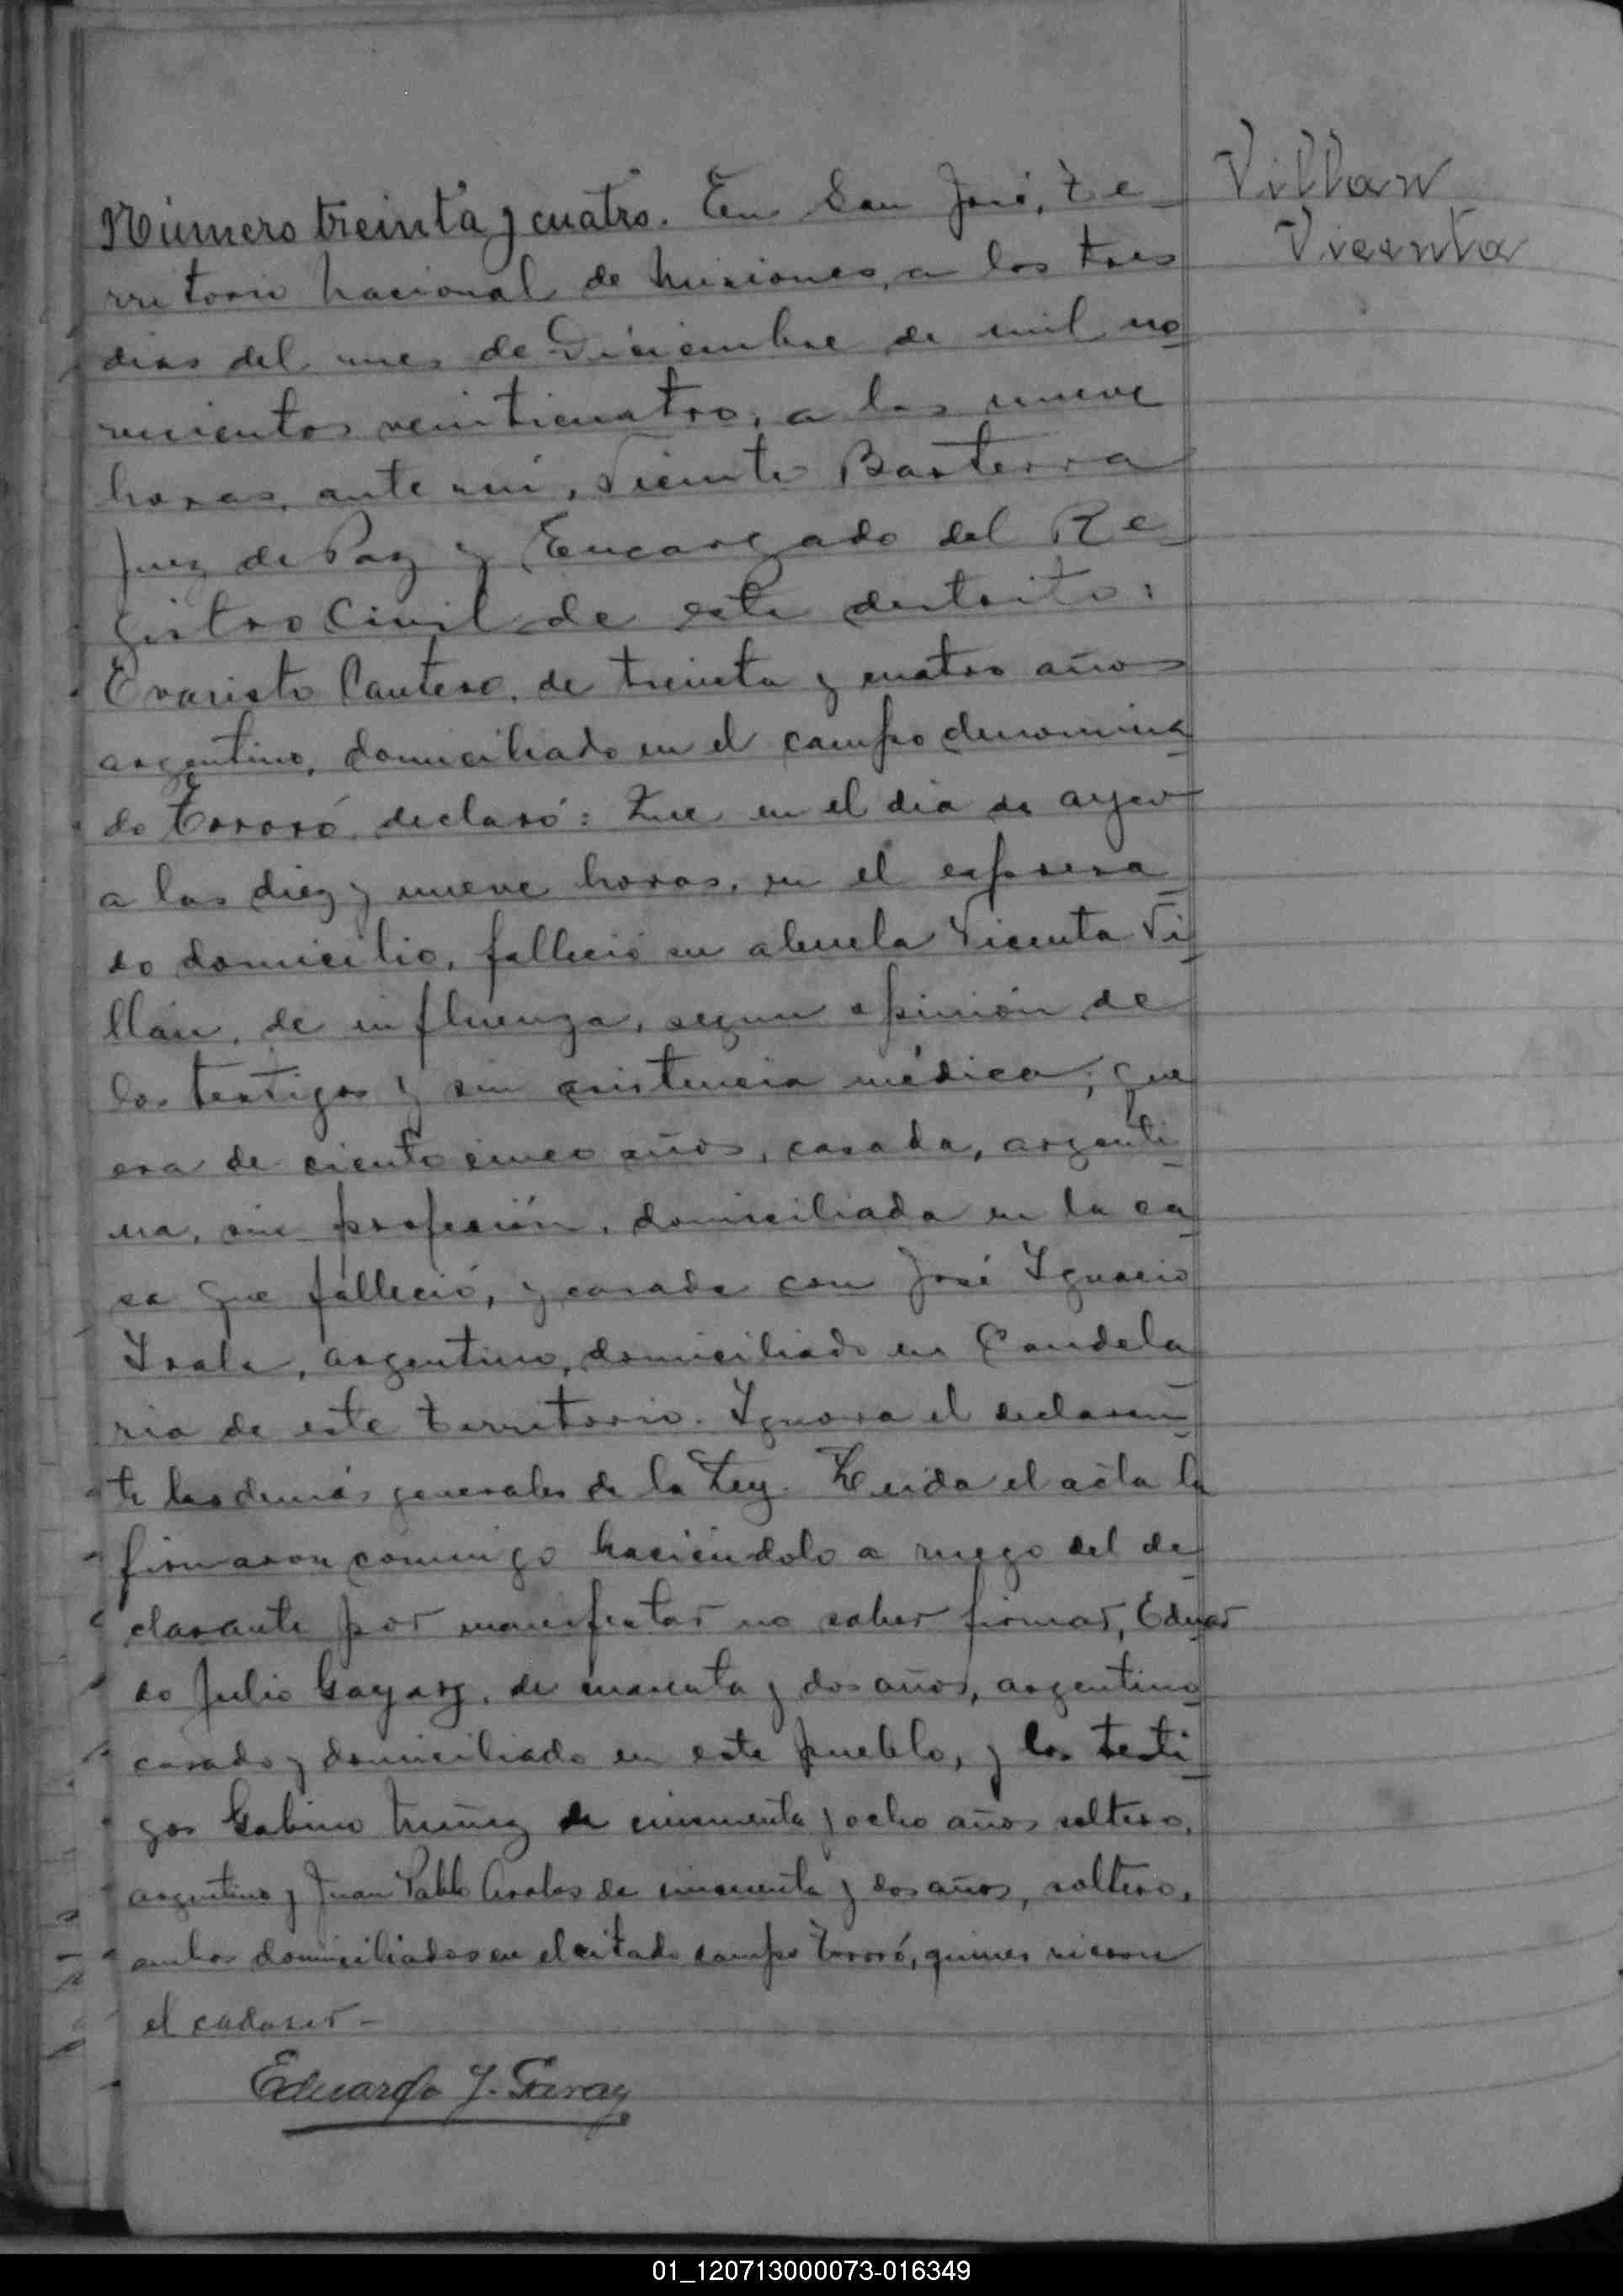 Villan
Vicenta
Número treinta y cuatro. En San José, Te-
rritorio Nacional de Misiones, a los tres
dias del mes de Diciembre de mil no-
vecientos veinticuatro, a las nueve
horas, ante mi, Vicente Basterra
Juez de Paz y Encargado del Re-
gistro Civil de este distrito:
Evaristo Cantero, de treinta y cuatro años
argentino, domiciliado en el campo denomina-
do Tororó, declaró: Que en el dia de ayer
a las diez y nueve horas, en el expresa-
do domicilio, falleció su abuela Vicenta Vi-
llán, de influenza, segun opinión de
los testigos y sin asistencia médica; que
era de ciento cinco años, casada, argenti-
na, sin profesión, domiciliada en la ca-
sa que falleció, y casada con José Ignacio
Irala, argentino, domiciliado en Candela-
ria de este territorio. Ignora el declaran-
te las demás generales de la Ley. Leida el acta la
firmaron conmigo haciéndolo a ruego del de-
clarante por manifestar no saber firmar, Eduar
do Julio Garay, de cuarenta y dos años, argentino
casado y domiciliado en este pueblo, y los testi-
gos Gabino Muñez de cincuenta y ocho años soltero,
argentino y Juan Pablo de cincuenta y dos años, soltero,
ambos domiciliados en el citado campo Tororó, quienes vieron
el cadaver -
Eduardo J. Garay
01_120713000073-016349